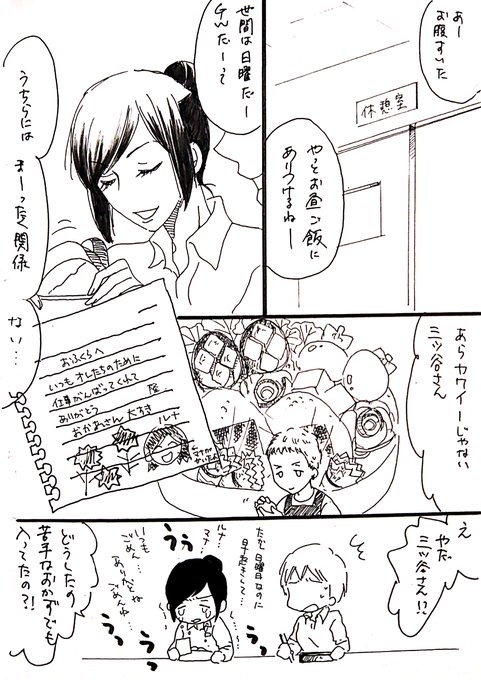 あー
お腹すいた
休憩室
やっとお昼ご飯に
ありつけるねー
世間は日曜だー
GWだーって
うちらには
まーったく関係
ない…
おふくろへ
いつもオレたちのために
仕事がんばってくれて
ありがとう 隆
おかあさん大好き
ルナ
あらカワイーじゃない
三ツ谷さん
え
やだ
三ツ谷さん!?
どうしたの
苦手なおかずでも
入ってたの?!
たか…日曜日なのに
早起きして…
ルナ…
マナ…
いつも…
ごめんね
ありがとね
ごめんゆ…
うっ
うっ
うっ